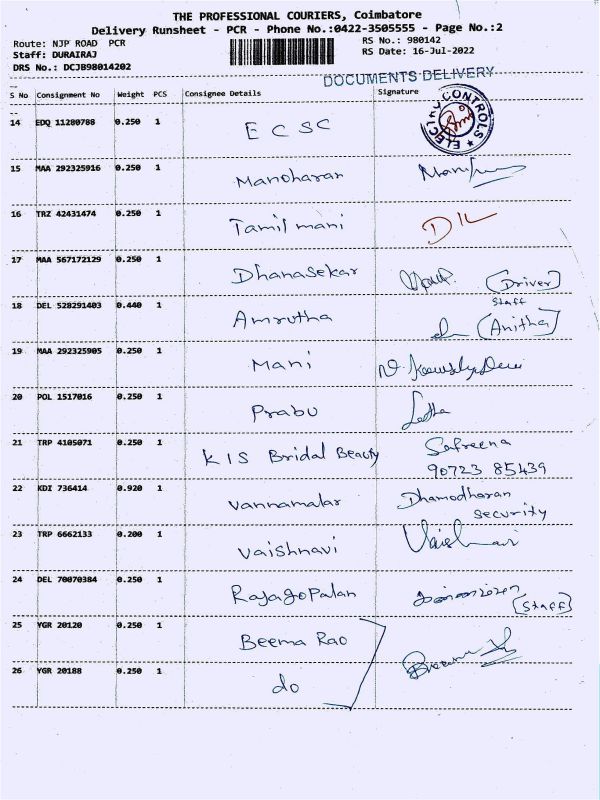 THE PROFESSIONAL COURIERS, Coimbatore
Delivery Runsheet - PCR - Phone No.:0422-3505555 - Page No.:2
Route: NJP ROAD PCR
RS No.: 980142
Staff: DURAIRAJ
RS Date: 16-Jul-2022
DRS No.: DCJB98014202
DOCUMENTS DELIVERY
S No Consignment No Weight PCS Consignee Details Signature
14 EDQ 11280788 0.250 1 E C S C
ELECTRO CONTROLS
15 MAA 292325916 0.250 1 Manoharan
16 TRZ 42431474 0.250 1 Tamil mani
17 MAA 567172129 0.250 1 Dhanasekar (Driver)
18 DEL 528291403 0.440 1 Amrutha Staff (Anitha)
19 MAA 292325905 0.250 1 Mani
20 POL 1517016 0.250 1 Prabu Latha
21 TRP 4105071 0.250 1 K I S Bridal Beauty Safreena
90723 85439
22 KDI 736414 0.920 1 Vannamalar Dhamodharan
security
23 TRP 6662133 0.200 1 Vaishnavi Vaishnavi
24 DEL 70070384 0.250 1 Rajagopalan
(Staff)
25 YGR 20120 0.250 1 Beema Rao
26 YGR 20188 0.250 1 do